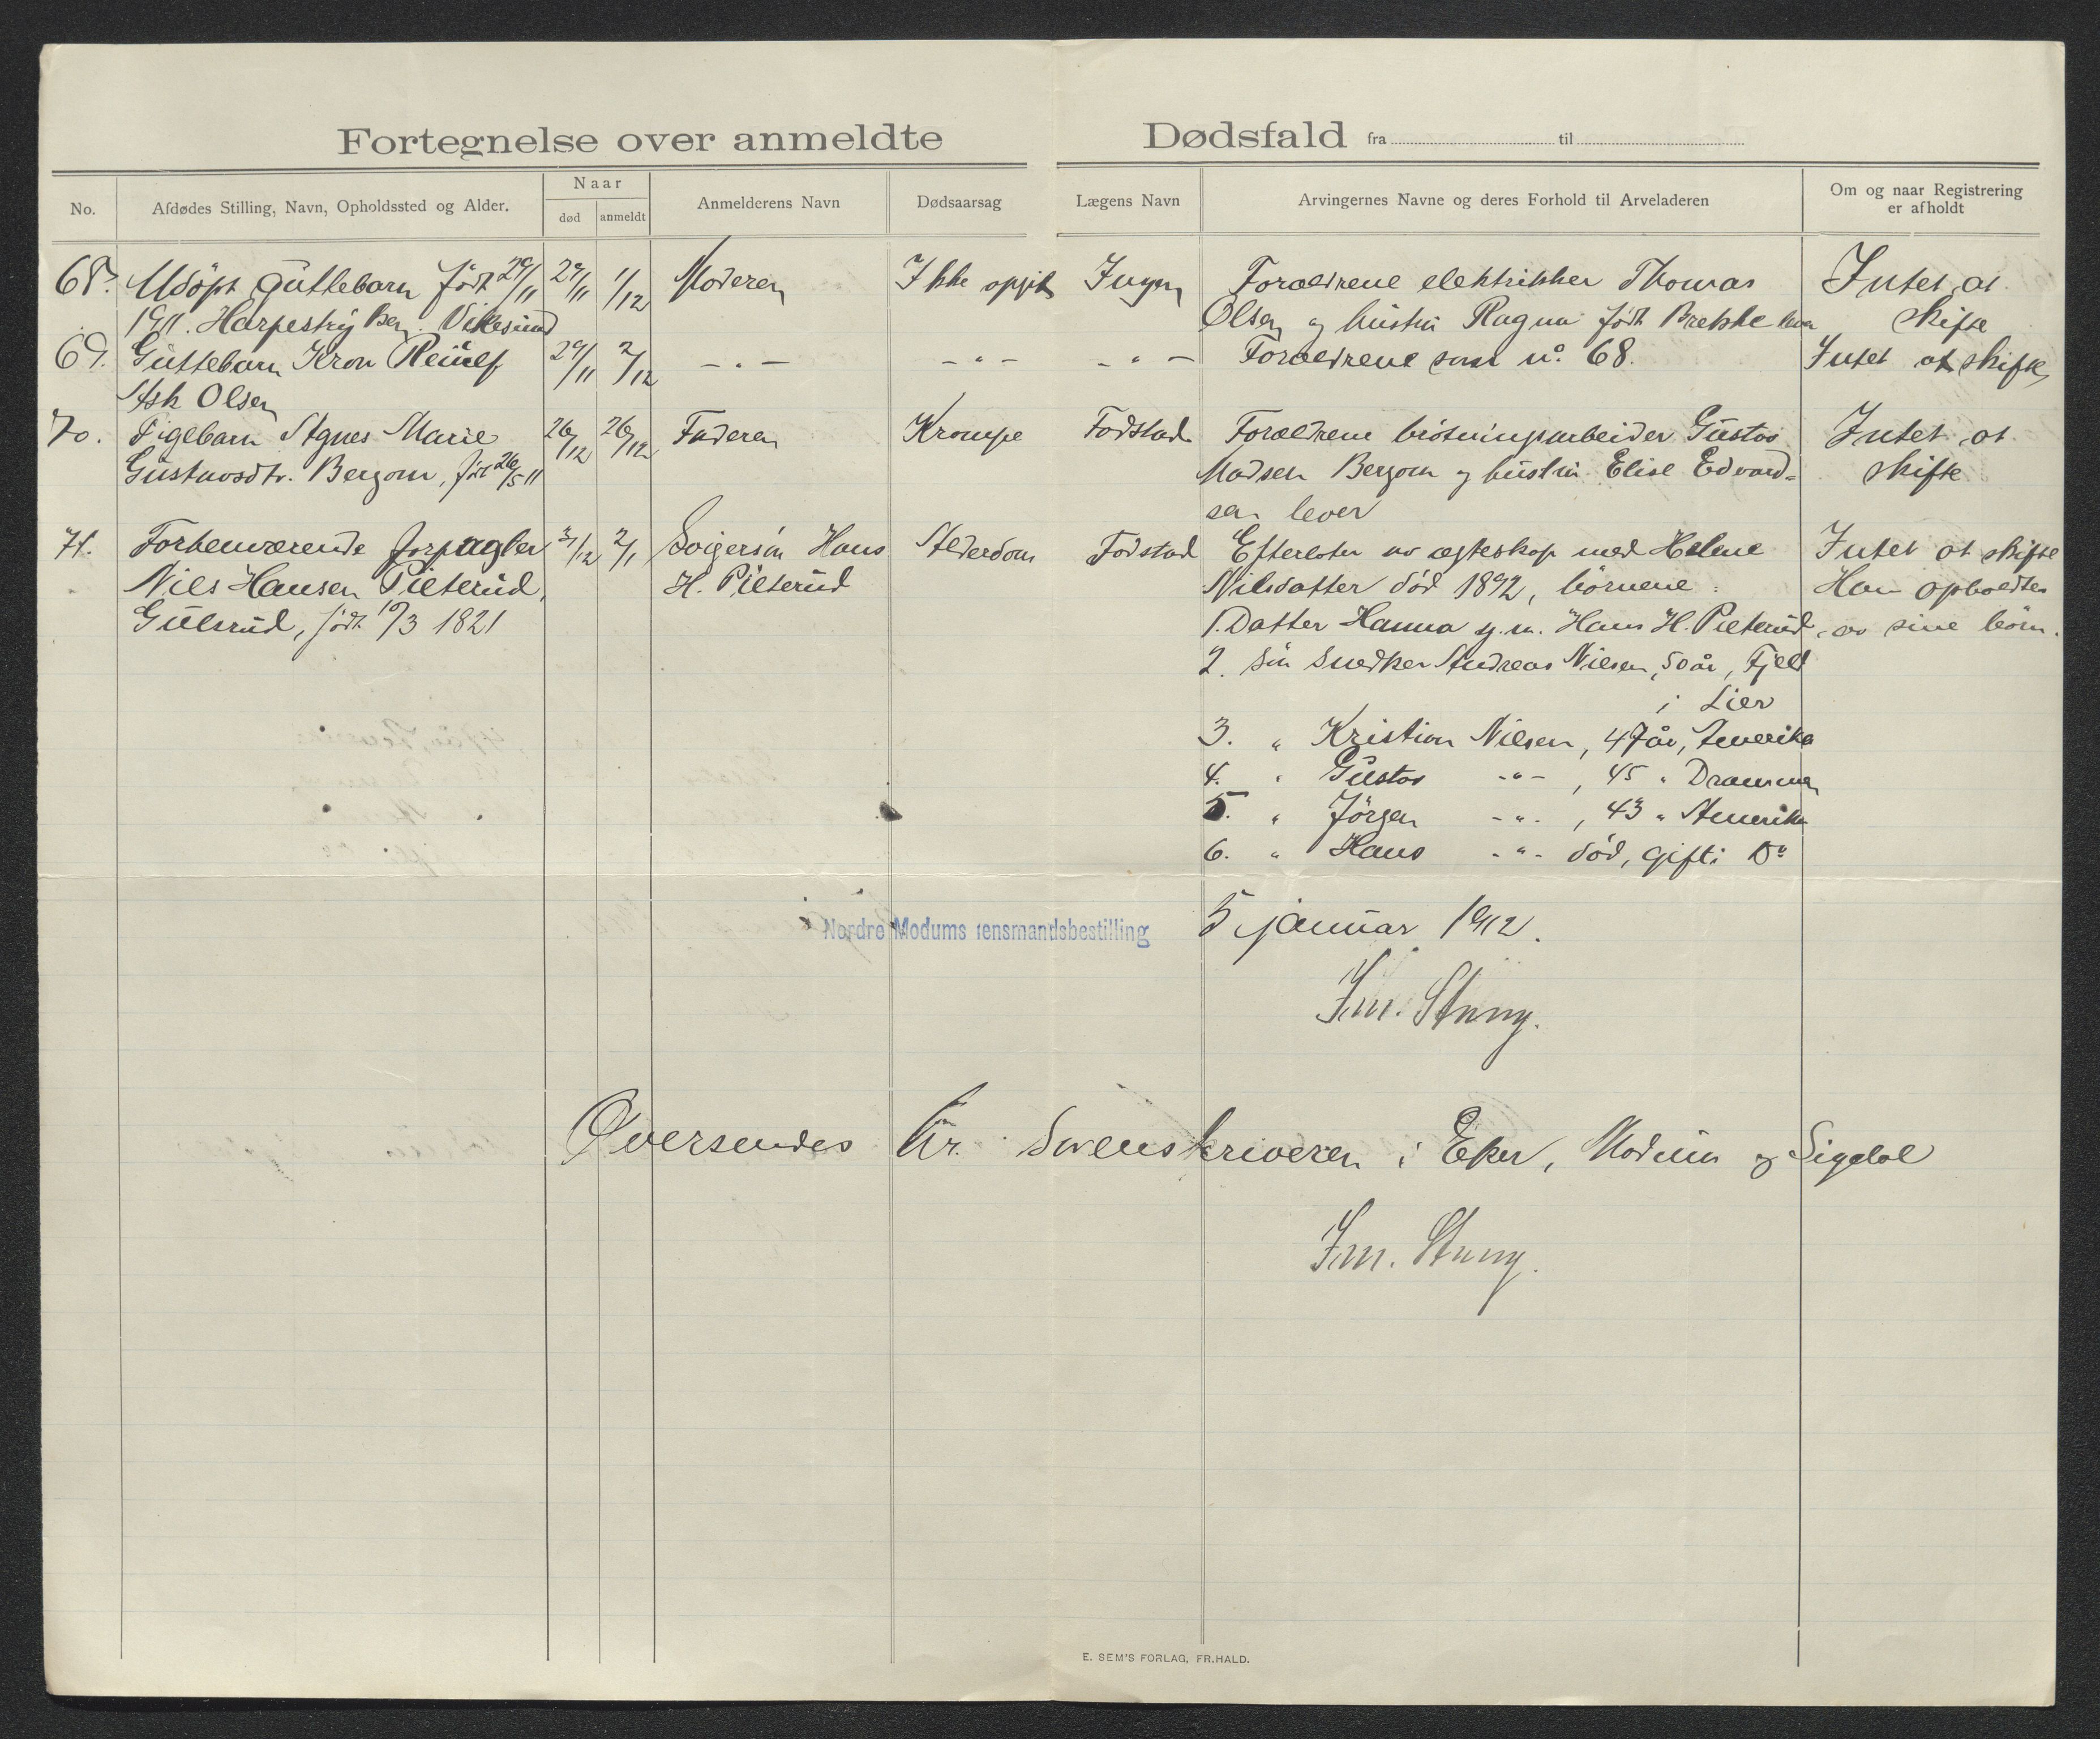 Fortegnelse over anmeldte Dødsfald fra til
No.
Afdødes Stilling, Navn, Opholdssted og Alder.
Naar
død anmeldt
Anmelderens Navn
Dødsaarsag
Lægens Navn
Arvingernes Navne og deres Forhold til Arveladeren
Om og naar Registrering
er afholdt
68. Udöpt guttebarn født 29/11 29/11 1/12 Moderen Ikke opgit Ingen Forældrene elektrikker Thomas Intet at
1911. Harpestryg Ber. Vikesund Olsen og hustru Ragna født Brekke lever skifte
69. Guttebarn Kron Reiulf 29/11 2/12 - " - - " - - " - Forældrene som nº 68. Intet at skifte
Ask Olsen
70. Pigebarn Agnes Marie 26/12 26/12 Faderen Krampe Fodstad Forældrene brötningsarbeider Gustav Intet at
Gustavsdtr. Bergom, født 26/5 11 Madsen Bergom og hustru Elise Edvard= skifte
sen lever
71. Forhenværende forpagter 31/12 2/1 Svigersön Hans Alderdom Fodstad Efterlater av ægteskap med Helene Intet at skifte
Nils Hansen Pilterud, H. Pilterud Nilsdatter död 1892, börnene: Han opholdtes
Gulsrud, födt 10/3 1821 1. Datter Hanna g.m. Hans H. Pilterud, av sine börn.
2. Sön Snedker Andreas Nilsen, 50 år, Fjell
i Lier
3. " Kristian Nilsen, 47 år, Amerika
4. " Gustav - " - , 45 " Drammen
5. " Jörgen - " - , 43 " Amerika
6. " Hans - " - död, gift i Dº
Nordre Modums lensmandsbestilling 5 januar 1912.
Im. Stuny.
Oversendes hr. Sorenskriveren i Eker, Modum og Sigdal
Im. Stuny.
E. SEM'S FORLAG, FR.HALD.